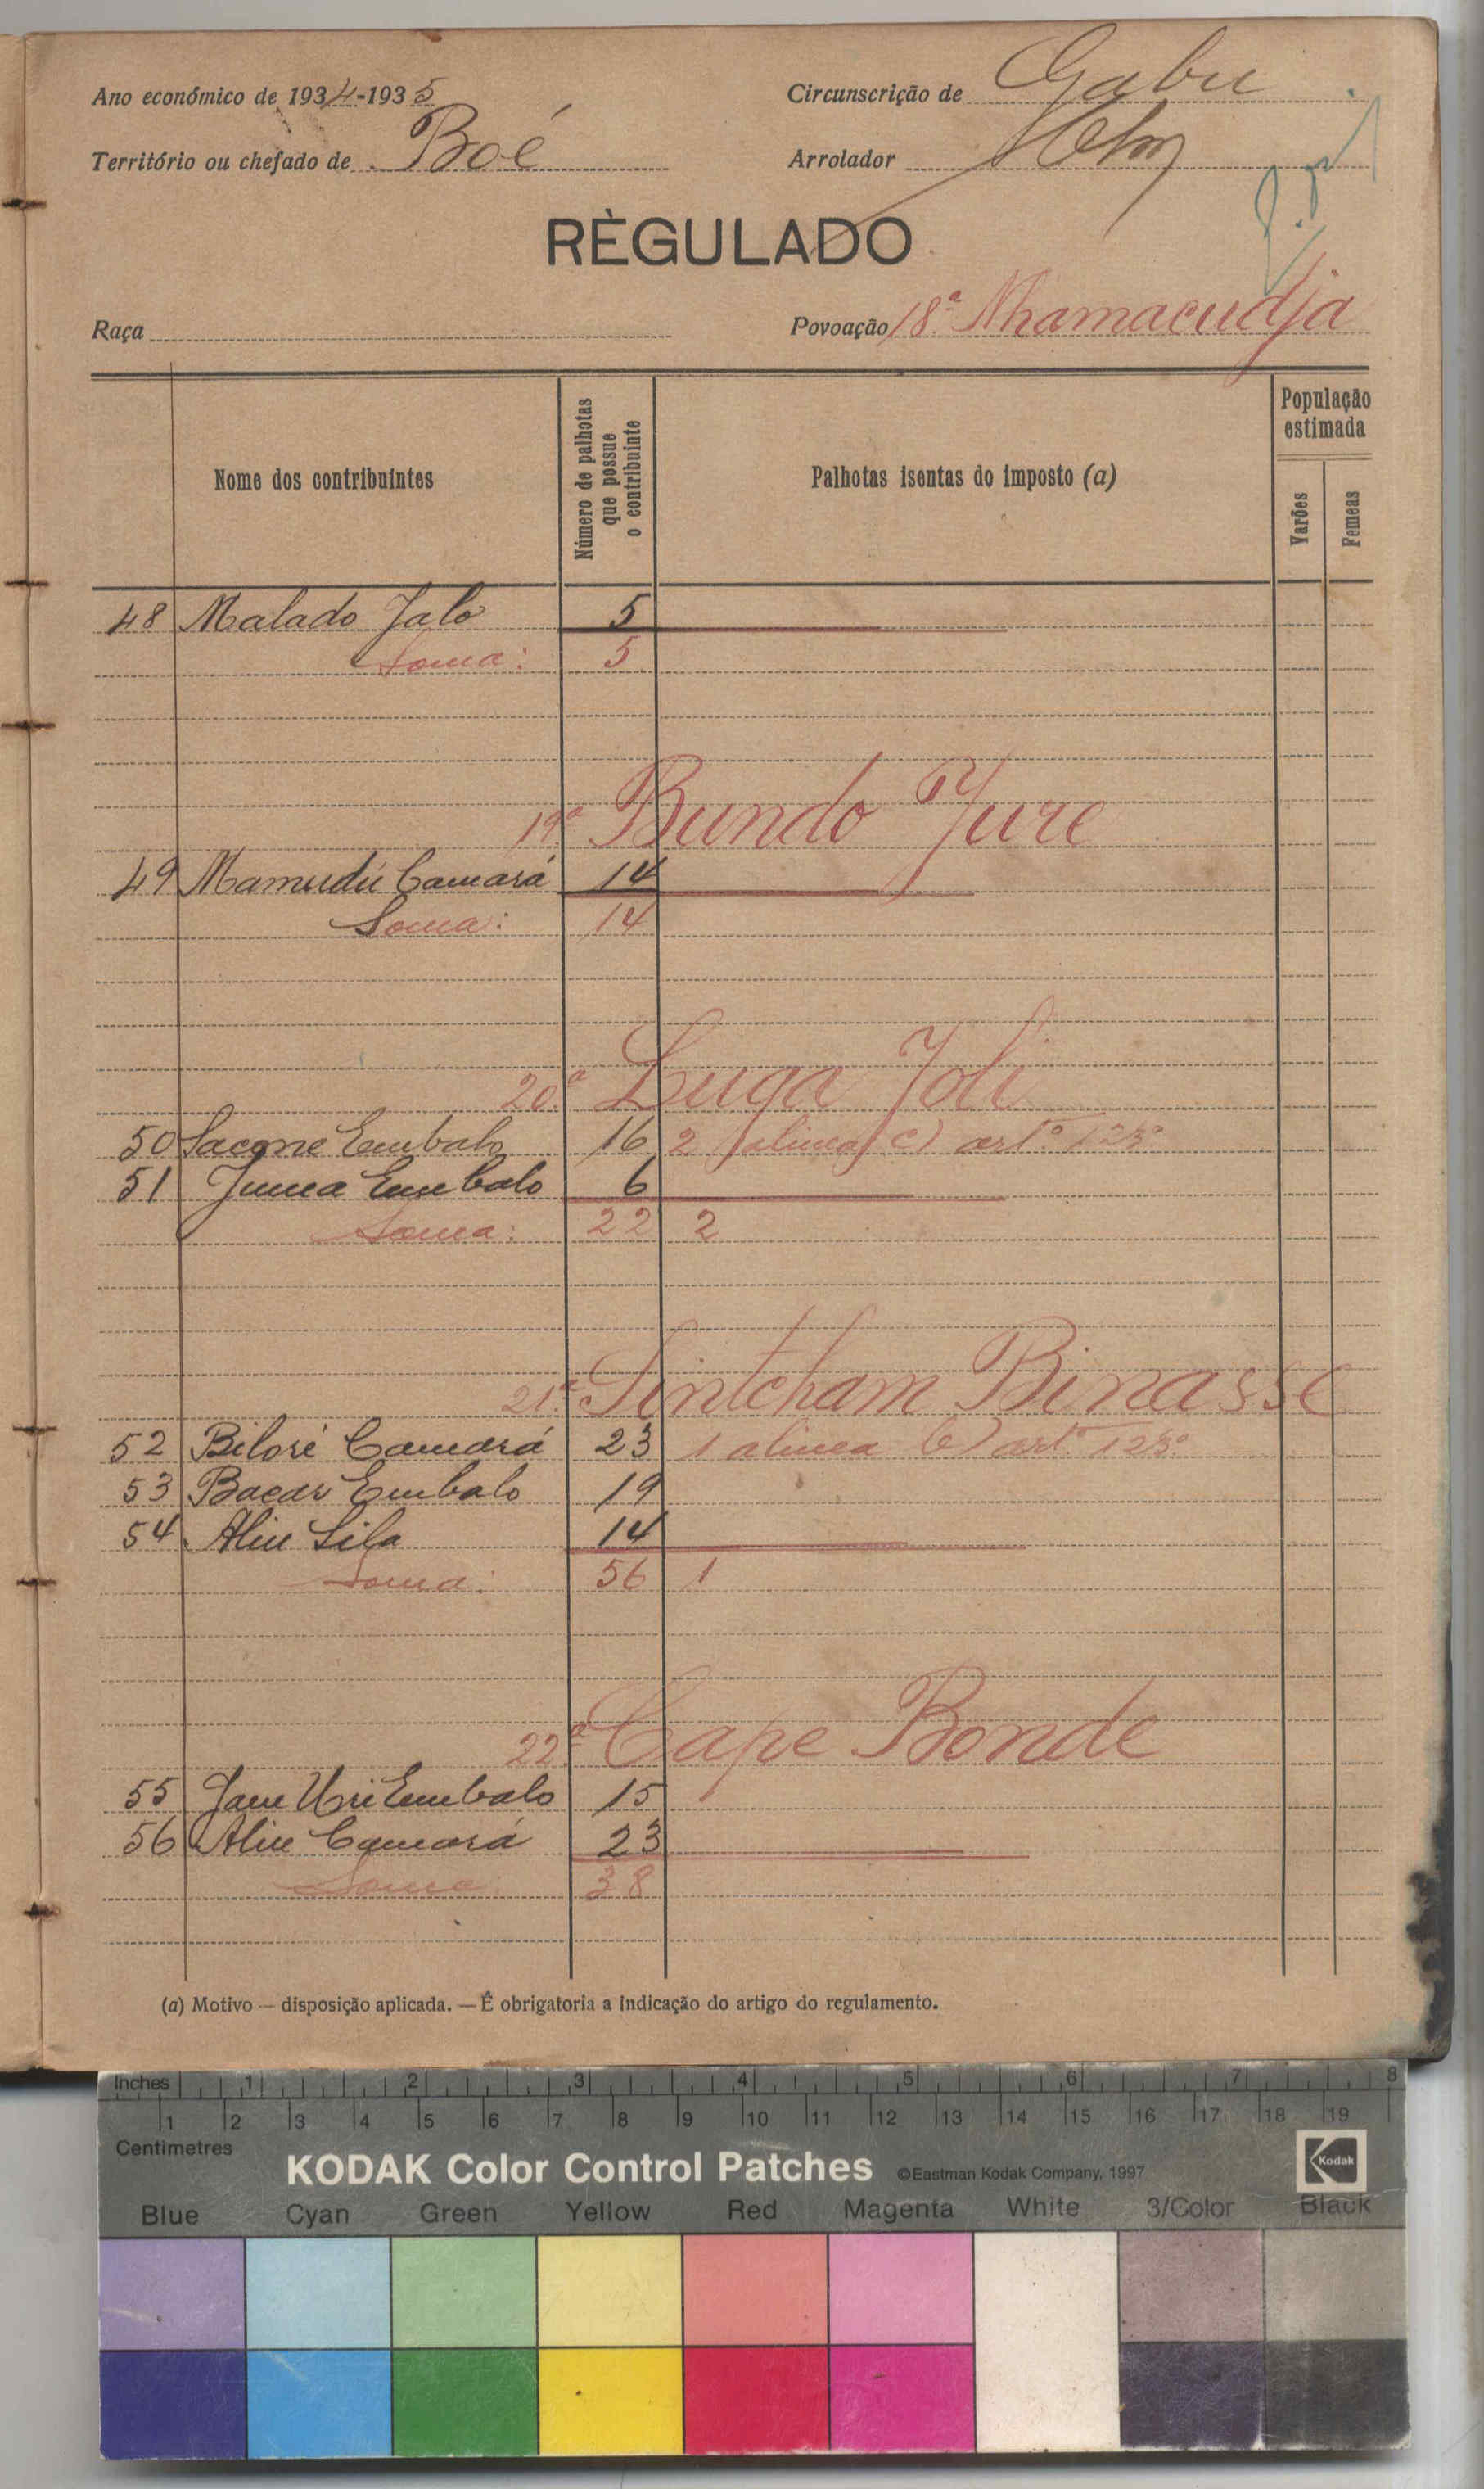 Ano económico de 1934-1935
Circunscrição de Gabu
Território ou chefado de Boé
Arrolador
RÈGULADO
Raça
Povoação 18ª Nhamacudja
Nome dos contribuintes
Número de palhotas que possue o contribuinte
Palhotas isentas do imposto (a)
População estimada
Varões
Femeas
48 Malado Jalo 5
Soma: 5
19ª Bundo Jure
49 Mamudú Camará 14
Soma: 14
20ª Luga Joli
50 Sacone Embalo 16 2 alinea c) artº 123º
51 Juma Embalo 6
Soma: 22 2
21ª Sintcham Binasse
52 Biloré Camará 23 1 alinea b) artº 123º
53 Bacar Embalo 19
54 Aliu Sila 14
Soma: 56 1
22ª Cape Bonde
55 Jam Uri Embalo 15
56 Aliu Camará 23
Soma 38
(a) Motivo — disposição aplicada. — É obrigatoria a indicação do artigo do regulamento.
Inches 1 2 3 4 5 6 7 8
1 2 3 4 5 6 7 8 9 10 11 12 13 14 15 16 17 18 19
Centimetres
KODAK Color Control Patches ©Eastman Kodak Company, 1997 Kodak
Blue Cyan Green Yellow Red Magenta White 3/Color Black